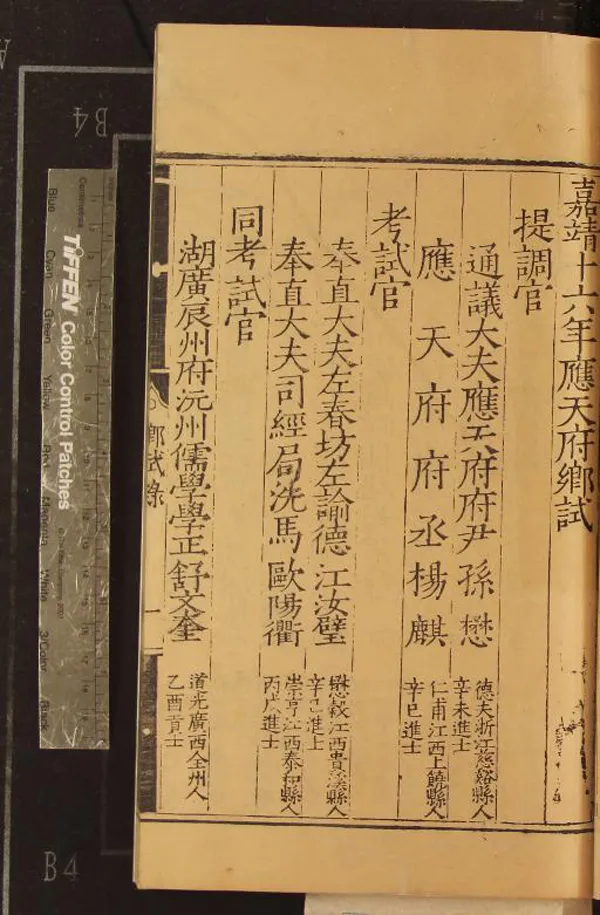 嘉靖十六年應天府鄉試
提調官
通議大夫應天府府尹孫懋
德夫浙江慈谿縣人
辛未進士
應天府府丞楊麒
仁甫江西上饒縣人
辛巳進士
考試官
奉直大夫左春坊左諭德江汝璧
懋穀江西貴溪縣人
辛巳進士
奉直大夫司經局洗馬歐陽衢
崇亨江西泰和縣人
丙戌進士
同考試官
湖廣辰州府沅州儒學學正舒文奎
道光廣西全州人
乙酉貢士
鄉試錄
一
B4
B4
A
TIFFEN Color Control Patches
Blue
Cyan
Green
Yellow
Red
Magenta
White
3/Color
Black